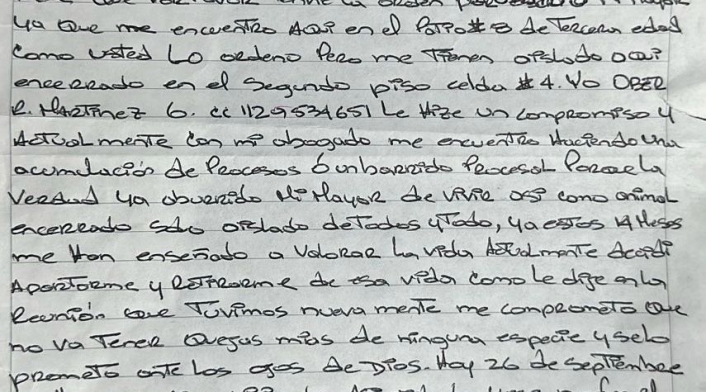 ya que me encuentro AQUI en el Patio # 8 de Tercera edad
como usted Lo ordeno Pero me Tienen aislado aqui
encerrado en el Segundo piso celda # 4. Yo OBER
R. Martinez G. cc 1129534651 Le Hize un compromiso y
Actualmente con mi abogado me encuentro Haciendo una
acumulación de Procesos ó un barrido Procesal Porque la
Verdad ya aburrido Mi Mayor de vivir asi como animal
encerrado solo aislado de Todos y Todo, ya estos 14 Meses
me Han enseñado a Valorar La vida Actualmente Decidi
Apartarme y Retirarme de esa vida como Le dije en la
Reunión que Tuvimos nueva mente me comprometo que
no va Tener Quejas mias de ninguna especie y selo
prometo ante Los ojos de Dios. Hoy 26 de septiembre